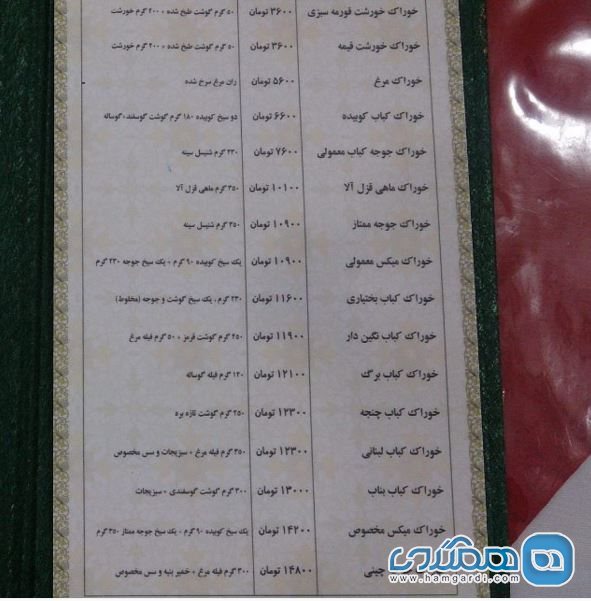 خوراک خورشت قورمه سبزی ۳۶۰۰ تومان ۵۰ گرم گوشت طبخ شده + ۲۰۰ گرم خورشت
خوراک خورشت قیمه ۳۶۰۰ تومان ۵۰ گرم گوشت طبخ شده + ۲۰۰ گرم خورشت
خوراک مرغ ۵۶۰۰ تومان ران مرغ سرخ شده
خوراک کباب کوبیده ۶۶۰۰ تومان دو سیخ کوبیده ۱۸۰ گرم گوشت گوسفند+گوساله
خوراک جوجه کباب معمولی ۷۶۰۰ تومان ۲۳۰ گرم شنیسل سینه
خوراک ماهی قزل آلا ۱۰۱۰۰ تومان ۳۵۰ گرم ماهی قزل آلا
خوراک جوجه ممتاز ۱۰۹۰۰ تومان ۳۵۰ گرم شنیسل سینه
خوراک میکس معمولی ۱۰۹۰۰ تومان یک سیخ کوبیده ۹۰ گرم + یک سیخ جوجه ۲۳۰ گرم
خوراک کباب بختیاری ۱۱۶۰۰ تومان ۲۳۰ گرم، یک سیخ گوشت و جوجه (مخلوط)
خوراک کباب نگین دار ۱۱۹۰۰ تومان ۲۵۰ گرم گوشت قرمز + ۵۰ گرم فیله مرغ
خوراک کباب برگ ۱۲۱۰۰ تومان ۱۲۰ گرم فیله گوساله
خوراک کباب چنجه ۱۲۳۰۰ تومان ۲۵۰ گرم گوشت تازه بره
خوراک کباب لبنانی ۱۲۳۰۰ تومان ۳۵۰ گرم فیله مرغ + سبزیجات و سس مخصوص
خوراک کباب بناب ۱۳۰۰۰ تومان ۳۰۰ گرم گوشت گوسفندی + سبزیجات
خوراک میکس مخصوص ۱۴۲۰۰ تومان یک سیخ کوبیده ۹۰ گرم + یک سیخ جوجه ممتاز ۳۵۰ گرم
چینی ۱۴۸۰۰ تومان ۳۰۰ گرم فیله مرغ + خمیر پنبه و سس مخصوص
همگردی
www.hamgardi.com